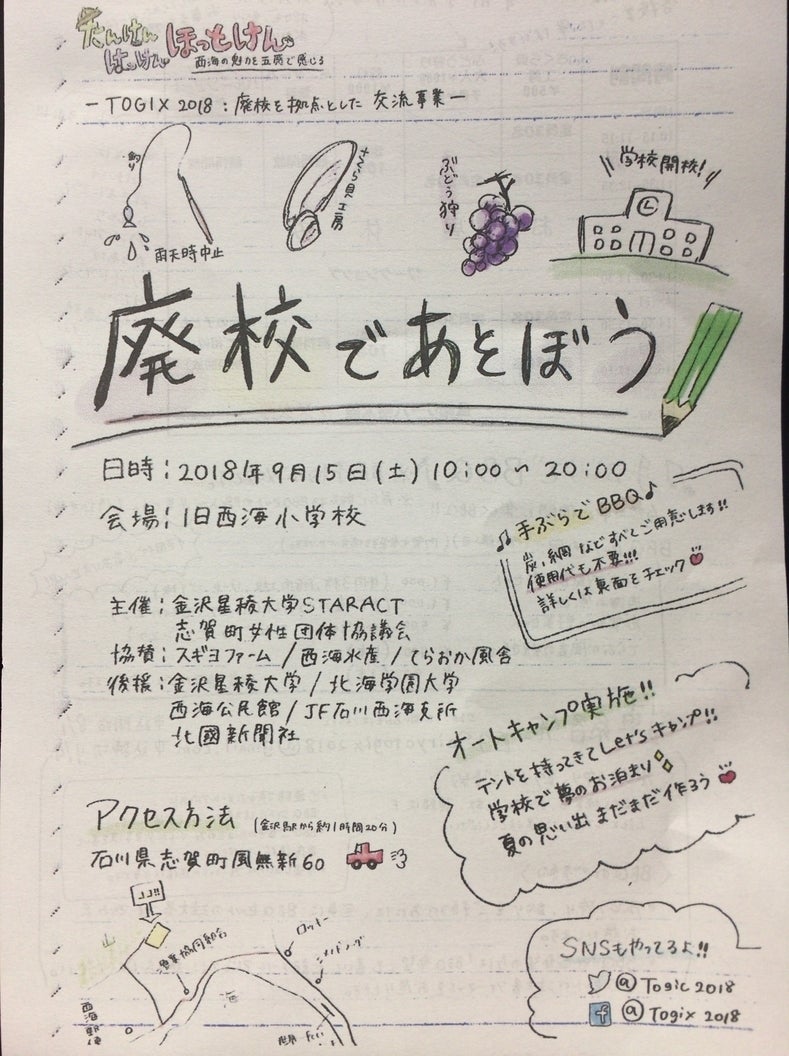 たんけん
はっけん
ほっとけん
西海の魅力を五感で感じる
ーTOGIX 2018：廃校を拠点とした 交流事業ー
釣り
雨天時中止
さくら貝工房
ぶどう狩り
学校開校！
廃校であそぼう
日時：2018年9月15日(土) 10:00〜20:00
会場：旧西海小学校
♫手ぶらでBBQ♪
炭、網などすべてご用意します!!
使用代も不要!!!
詳しくは裏面をチェック
主催：金沢星稜大学STARACT
志賀町女性団体協議会
協賛：スギヨファーム/西海水産/てらおか風舎
後援：金沢星稜大学/北海学園大学
西海公民館/JF石川西海支所
北國新聞社
オートキャンプ実施!!
テントを持ってきてLet'sキャンプ!!
学校で夢のお泊まり
夏の思い出まだまだ作ろう
アクセス方法 (金沢駅から約1時間20分)
石川県志賀町風無新60
ココ!!
山
漁業協同組合
海
西海郵便
SNSもやってるよ!!
@Togic2018
@Togix2018